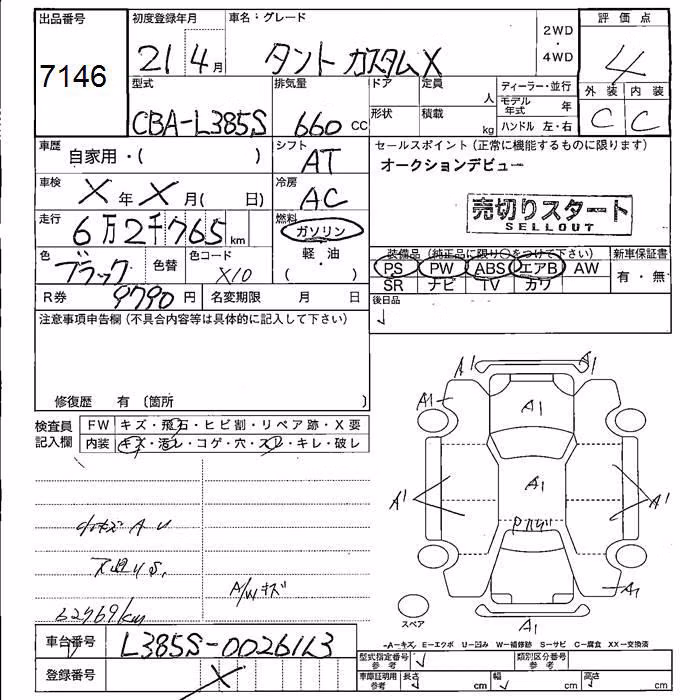 出品番号
7146
初度登録年月
21 4月
車名：グレード
タント カスタムX
2WD
・
4WD
評価点
4
型式
CBA-L385S
排気量
660 CC
ドア
形状
定員
人
積載
kg
ディーラー・並行
モデル年式 年
ハンドル 左・右
外装 内装
C C
車歴
自家用・( )
シフト
AT
セールスポイント（正常に機能するものに限ります）
オークションデビュー
車検
X 年 X 月( 日)
冷房
AC
売切りスタート
SELLOUT
走行
6万2千765km
燃料
ガソリン
軽・油
( )
色
ブラック
色替
色コード
X10
装備品（純正品に限り○をつけて下さい）
PS PW ABS エアB AW
SR ナビ TV カワ
新車保証書
有・無
R券 9790円
名変期限 月 日
後日品
注意事項申告欄（不具合内容等は具体的に記入して下さい）
修復歴 有〔箇所 〕
検査員記入欄
FW キズ・飛石・ヒビ割・リペア跡・X要
内装 キズ・汚レ・コゲ・穴・スレ・キレ・破レ
A1 A1
A1 A1
A1 A1 A1
A1
A1
スペア
A/Wキズ
62769km
A−キズ E−エクボ U−凹み W−補修跡 S−サビ C−腐食 XX−交換済
車台番号
L385S-0026113
登録番号
X
型式指定番号
参考
類別区分番号
参考
車庫証明用
参考
長さ cm
幅 cm
高さ cm